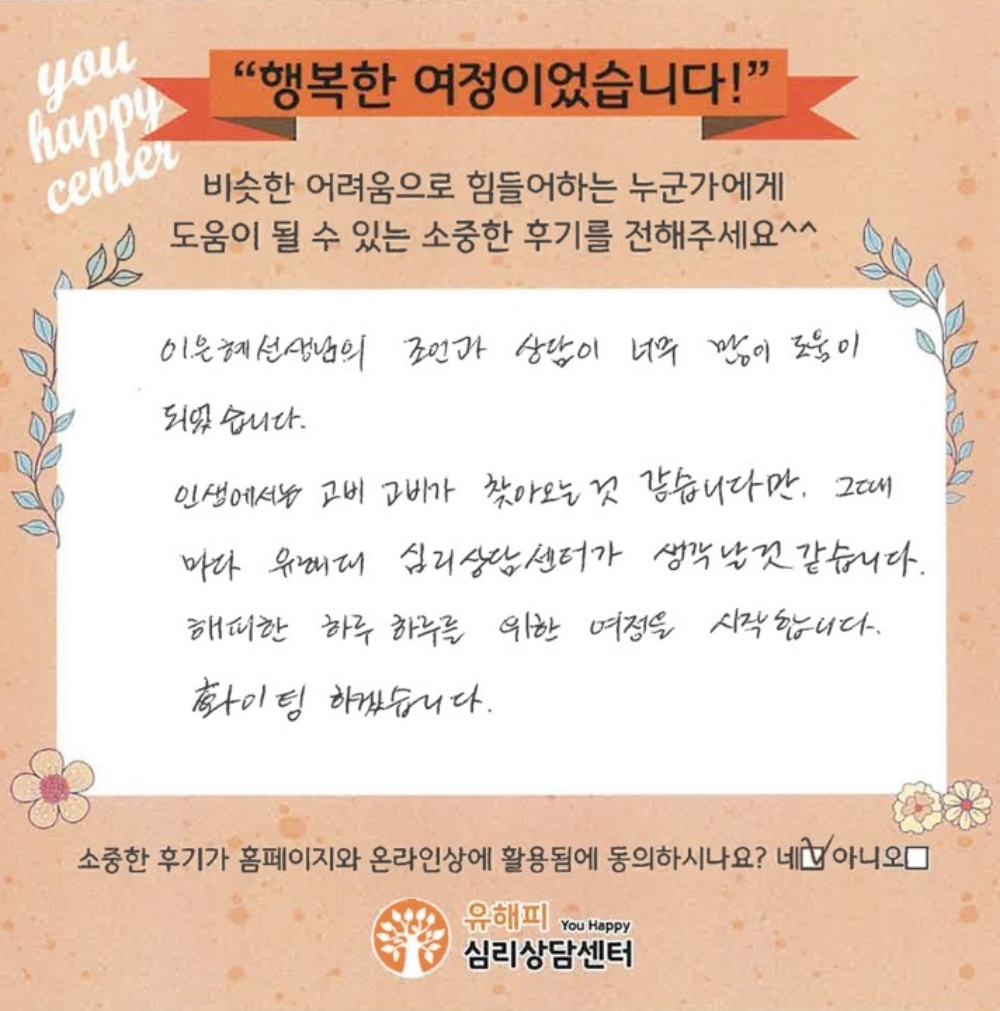 you
happy
center
“행복한 여정이었습니다!”
비슷한 어려움으로 힘들어하는 누군가에게
도움이 될 수 있는 소중한 후기를 전해주세요^^
이은혜선생님의 조언과 상담이 너무 많이 도움이
되었습니다.
인생에서는 고비 고비가 찾아오는것 같습니다만. 그때
마다 유해피 심리상담센터가 생각날것 같습니다.
해피한 하루 하루를 위한 여정을 시작합니다.
화이팅 하겠습니다.
소중한 후기가 홈페이지와 온라인상에 활용됨에 동의하시나요? 네☑ 아니오☐
유해피 You Happy
심리상담센터